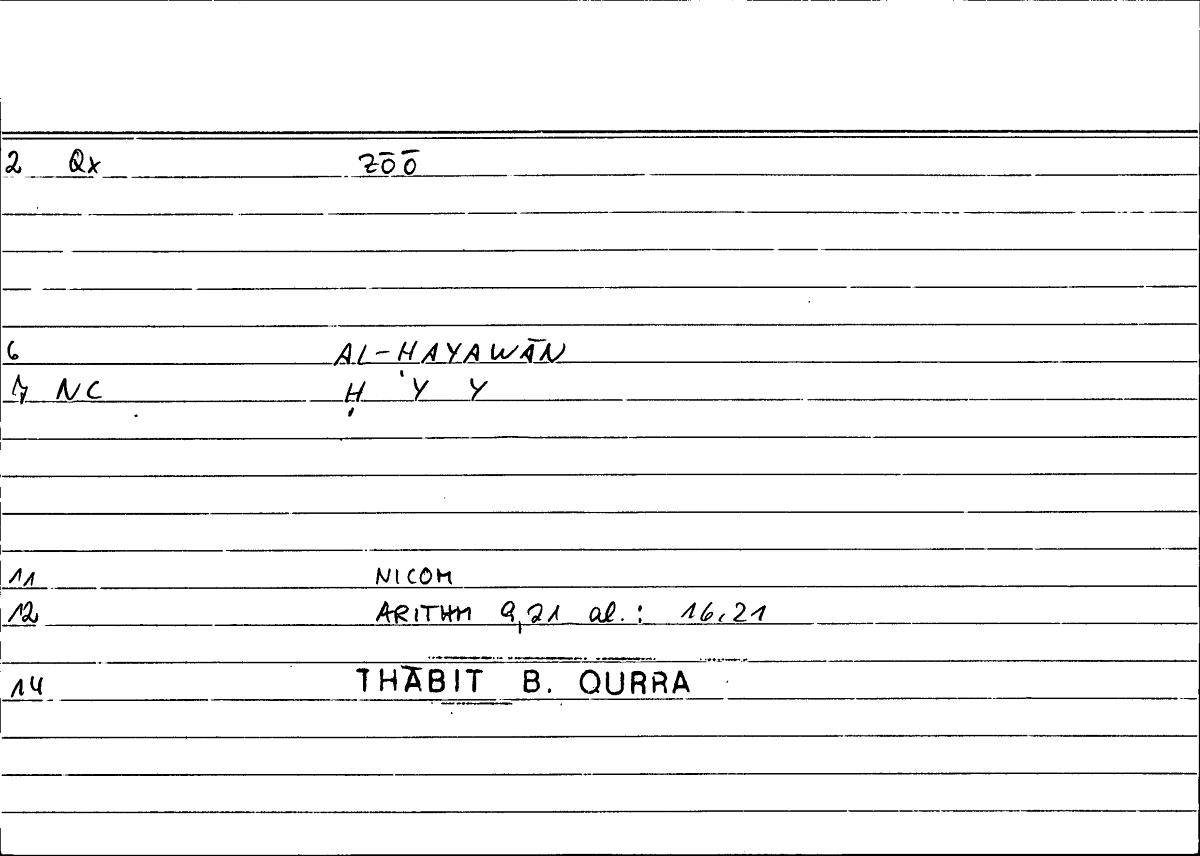 2 Qx ZŌŌ
6 AL-ḤAYAWĀN
7 NC Ḥ Y Y
11 NICOM
12 ARITHM 9,21 al.: 16,21
14 THĀBIT B. QURRA